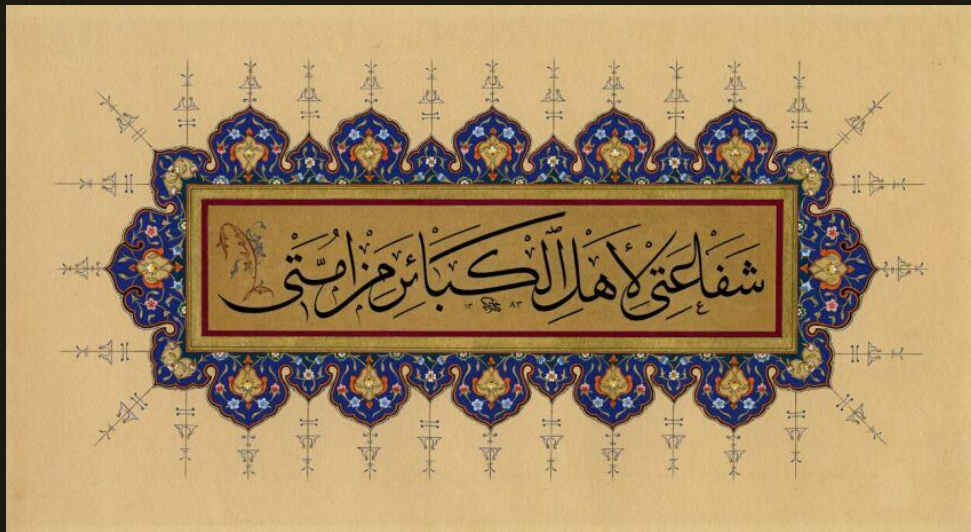 شَفَاعَتِى لِأَهْلِ الْكَبَائِرِ مِنْ اُمَّتِى
١٣ ٨٣